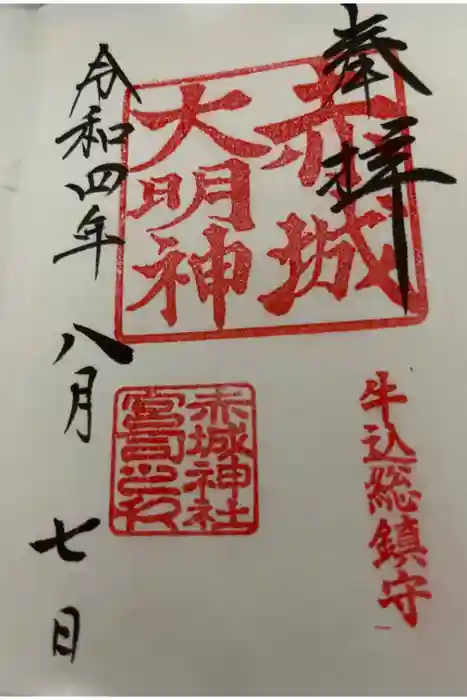 奉拝
赤城
大明神
牛込総鎮守
赤城神社
宮司之印
令和四年八月七日